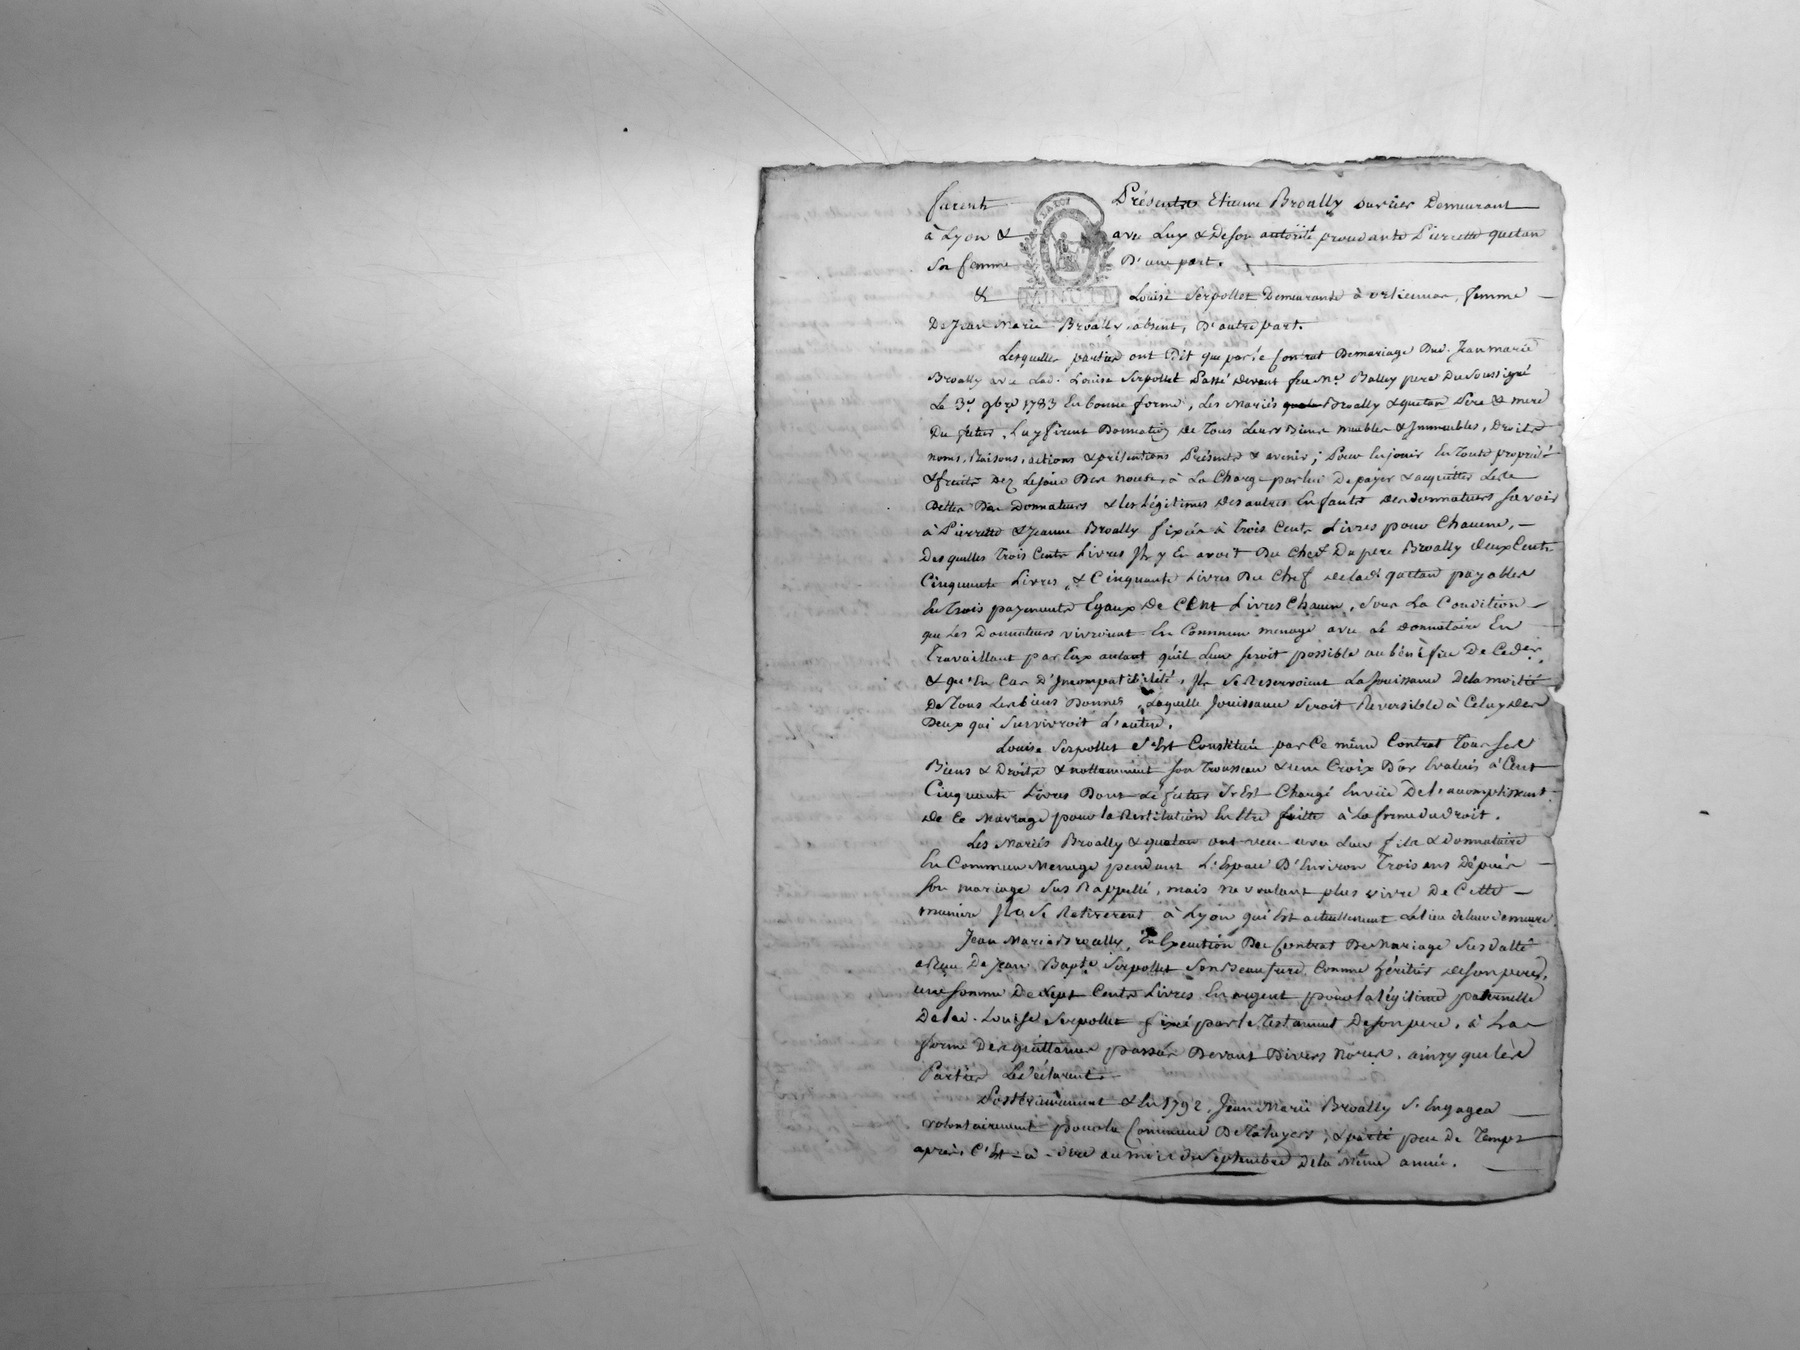 furent Présents Etienne Broally ouvrier Demeurant
à Lyon & avec Luy & de son autorité procedante Pierrette quetan
sa femme D'une part.
LA LOI
MINUTE
& Louise Serpollet Demeurante à femme
De Jean Marie Broally absent, D'autre part.
Lesquelles parties ont Dit que par le Contrat De mariage Dud. Jean marie
Broally avec Lad. Louise Serpollet Passé devant feu Me. Bally pere Du Soussigné
Le 3e. 9bre 1783 En bonne forme, Les Mariés Broally & quetan Pere & mere
Du futur, Luy firent Donnation de Tous Leurs Biens meubles & Immeubles, Droits
noms, Raisons, actions & prétentions Présents & avenir; Pour En jouir En Toute proprieté
& fruits Dez Le jour Des noces, à La Charge par lui De payer & acquitter Les
Dettes Des Donnateurs & les Légitimes des autres Enfants des donnateurs savoir
à Pierrette & Jeanne Broally fixées à Trois Cents Livres pour Chacune,
Desquelles Trois Cents Livres Il y En avoit Du Chef Du pere Broally deux Cents
Cinquante Livres, & Cinquante Livres Du Chef de lad. quetan payables
En Trois payements Egaux De Cent Livres Chacun, Sous La Condition
que Les Donnateurs vivroient En Commun menage avec Le donnataire En
Travaillant par Eux autant qu'il Leur seroit possible au bénéfice De Ce der.
& qu'En Cas D'Incompatibilité, Ils Se Reservoient La Jouissance De la moitié
De Tous Les biens Donnés, Laquelle Jouissance Seroit Reversible à Celuy des
Deux qui Survivroit L'autre.
Louise Serpollet s'Est Constituée par Ce même Contrat Tous ses
Biens & Droits & nottamment son Trousseau & une Croix D'or Evalués à Cent
Cinquante Livres Dont Le futur s'Est Chargé En vüe De l'accomplissement
de Ce Mariage pour la Restitution En Etre faitte à La forme du droit.
Les Mariés Broally & quetan ont vecu avec Leur fils & donnataire
En Commun Menage pendant L'Espace D'Environ Trois ans Dépuis
son mariage Sus Rappellé, mais ne voulant plus vivre De Cette
maniere Ils Se Retirerent à Lyon qui Est actuellement Le Lieu de leur demeure.
Jean Marie Broally, En Execution Du Contrat De Mariage Susdatté
a Reçu De Jean Bapte. Serpollet Son Beau frere, Comme héritier de son pere,
une somme De Sept Cents Livres En argent pour la légitime paternelle
De lad. Louise Serpollet fixée par le Testament De son pere, à La
forme Des quittances passées Devant Divers Nores. ainsy que les
Parties Le déclarent.
Postérieurement & En 1792, Jean Marie Broally S'Engagea
volontairement pour la Commune De Taluyers, & partit peu De Temps
après C'Est-à-dire au mois de Septembre de la Même année.